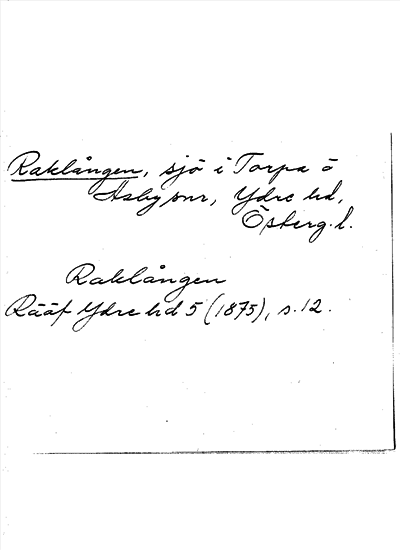 Raklången, sjö i Torpa o
Asby snr, Ydre hd,
Östergl.
Raklången
Rääf Ydre hd 5 (1875), s. 12.